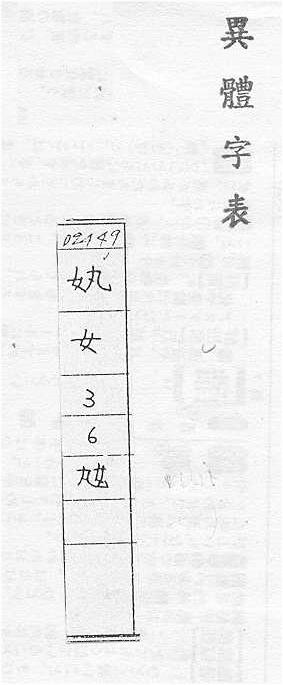 異體字表
02149
奿
女
3
6